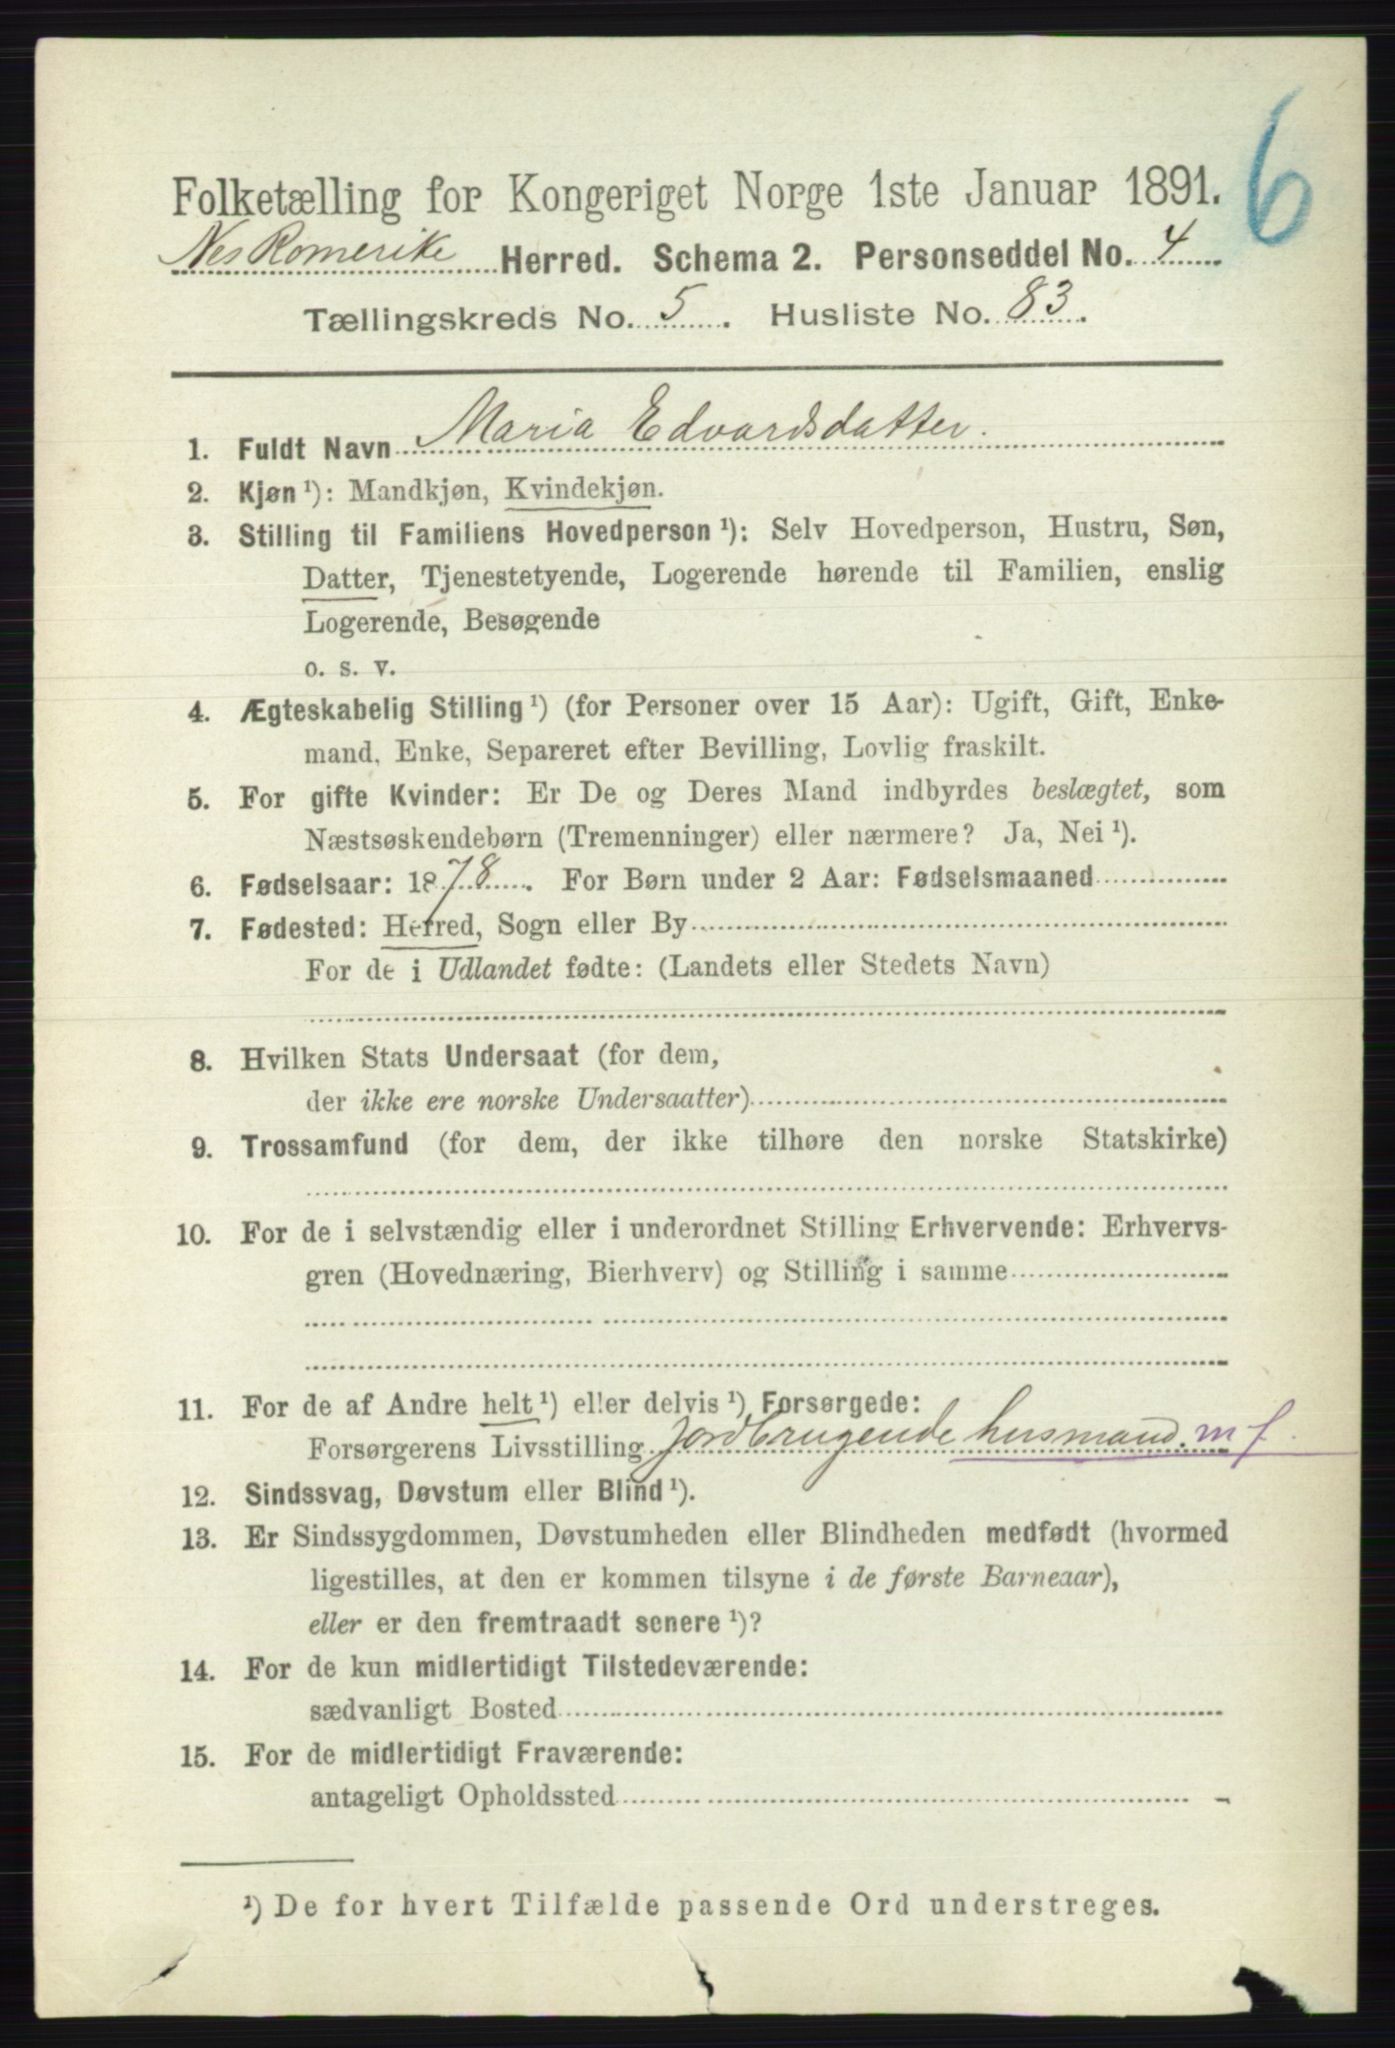 6
Folketælling for Kongeriget Norge 1ste Januar 1891.
Nes Romerike Herred. Schema 2. Personseddel No. 4
Tællingskreds No. 5. Husliste No. 83.
1. Fuldt Navn Maria Edvardsdatter.
2. Kjøn ¹): Mandkjøn, Kvindekjøn.
3. Stilling til Familiens Hovedperson ¹): Selv Hovedperson, Hustru, Søn,
Datter, Tjenestetyende, Logerende hørende til Familien, enslig
Logerende, Besøgende
o. s. v.
4. Ægteskabelig Stilling ¹) (for Personer over 15 Aar): Ugift, Gift, Enke-
mand, Enke, Separeret efter Bevilling, Lovlig fraskilt.
5. For gifte Kvinder: Er De og Deres Mand indbyrdes beslægtet, som
Næstsøskendebørn (Tremenninger) eller nærmere? Ja, Nei ¹).
6. Fødselsaar: 1878. For Børn under 2 Aar: Fødselsmaaned
7. Fødested: Herred, Sogn eller By
For de i Udlandet fødte: (Landets eller Stedets Navn)
8. Hvilken Stats Undersaat (for dem,
der ikke ere norske Undersaatter)
9. Trossamfund (for dem, der ikke tilhøre den norske Statskirke)
10. For de i selvstændig eller i underordnet Stilling Erhvervende: Erhvervs-
gren (Hovednæring, Bierhverv) og Stilling i samme
11. For de af Andre helt ¹) eller delvis ¹) Forsørgede:
Forsørgerens Livsstilling Jordbrugende husmand. m f.
12. Sindssvag, Døvstum eller Blind ¹).
13. Er Sindssygdommen, Døvstumheden eller Blindheden medfødt (hvormed
ligestilles, at den er kommen tilsyne i de første Barneaar),
eller er den fremtraadt senere ¹)?
14. For de kun midlertidigt Tilstedeværende:
sædvanligt Bosted
15. For de midlertidigt Fraværende:
antageligt Opholdssted
¹) De for hvert Tilfælde passende Ord understreges.